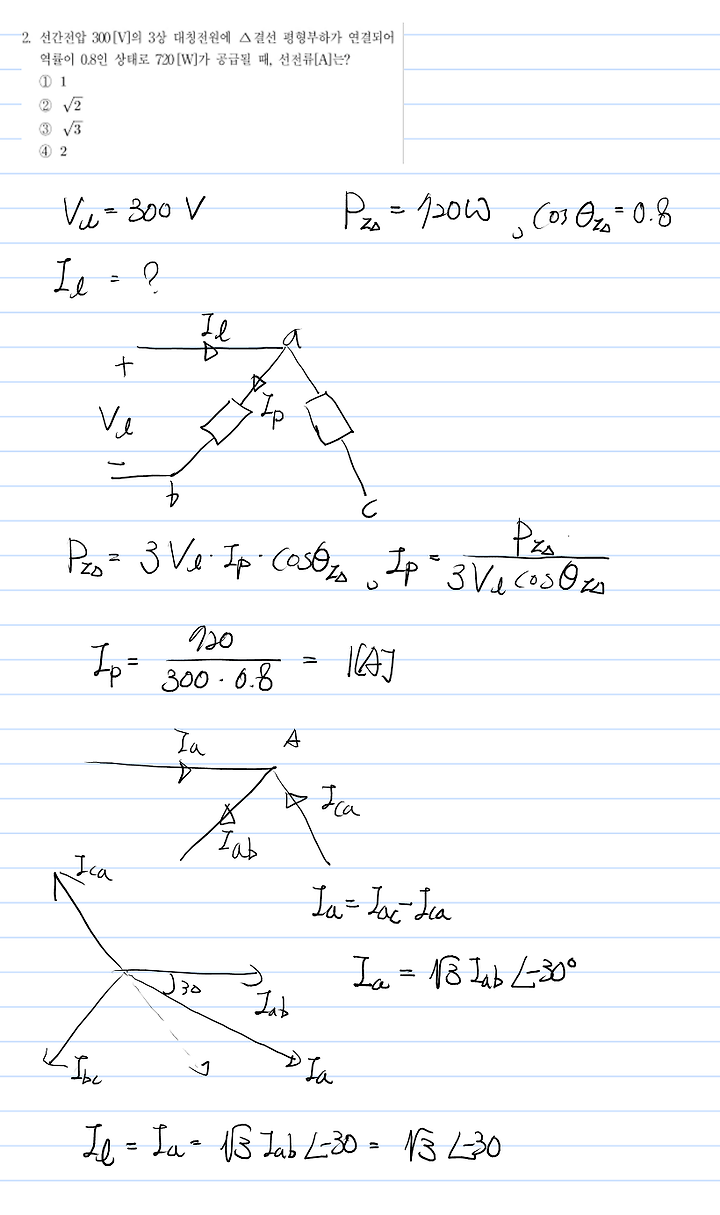 2. 선간전압 300[V]의 3상 대칭전원에 △결선 평형부하가 연결되어
역률이 0.8인 상태로 720[W]가 공급될 때, 선전류[A]는?
① 1
② √2
③ √3
④ 2
Vl = 300 V
PZ△ = 720W , cosθZ△ = 0.8
Il = ?
Il
a
+
Vl
Ip
-
b
c
PZ△ = 3Vl · Ip · cosθZ△ , Ip = PZ△ / 3Vl cosθZ△
Ip = 720 / 300 · 0.8 = 1[A]
Ia
A
Ica
Iab
Ica
Ia = Iac - Ica
Ia = √3 Iab ∠-30°
30
Iab
Ibc
Ia
Il = Ia = √3 Iab ∠-30 = √3 ∠-30